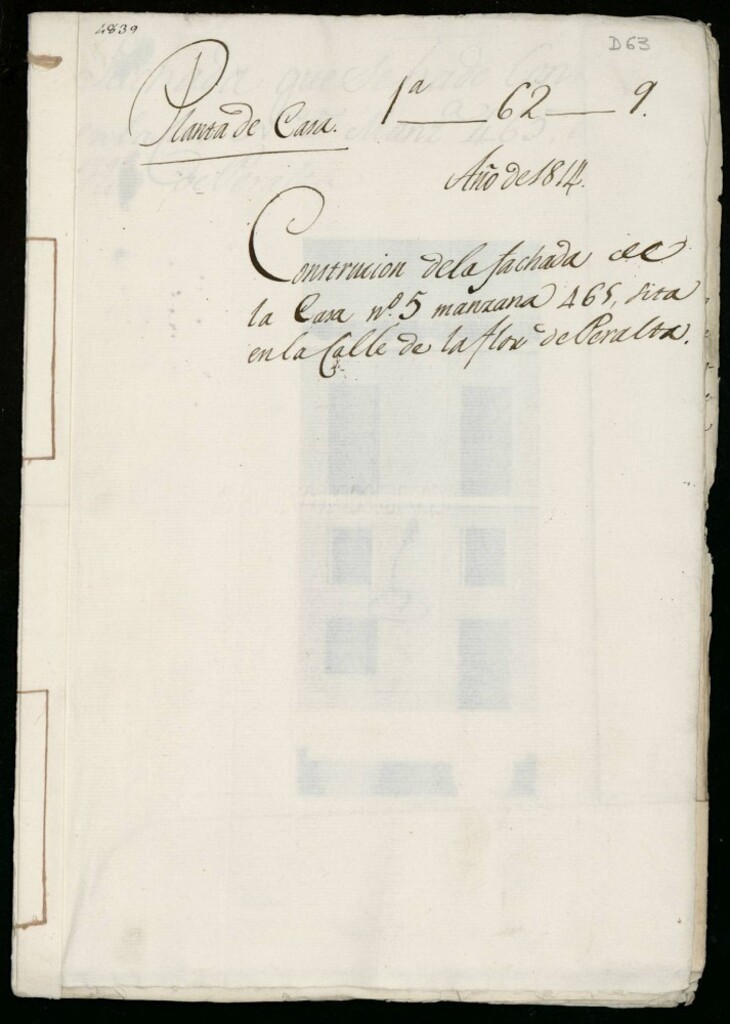 4839
D63
Planta de Casa. 1ª 62 9.
Año de 1814.
Construcion dela fachada de
la Casa nº. 5 manzana 465, sita
en la Calle de la flor de Peralta.